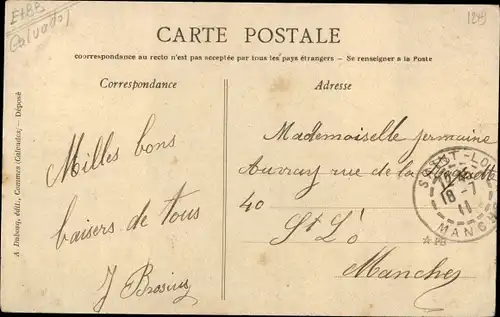 E+BB
Calvados
1249
CARTE POSTALE
La correspondance au recto n'est pas acceptée par tous les pays étrangers — Se renseigner à la Poste
Correspondance
Adresse
A. Dubosq, édit., Commes (Calvados) — Déposé
Milles bons
baisers de tous
J
Mademoiselle Germaine
Auvray rue de la
40
St Lô
Manches
SAINT-LO
18-7
11
MANCHE